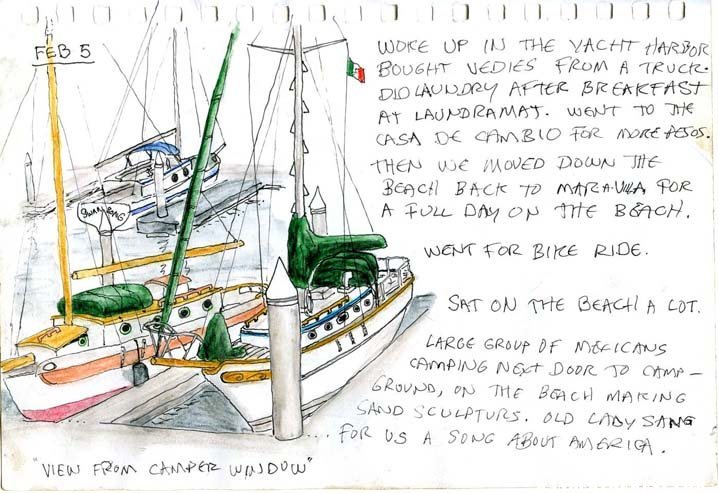 FEB 5
WOKE UP IN THE YACHT HARBOR
BOUGHT VEDIES FROM A TRUCK.
DID LAUNDRY AFTER BREAKFAST
AT LAUNDRAMAT. WENT TO THE
CASA DE CAMBIO FOR MORE PESOS.
THEN WE MOVED DOWN THE
BEACH BACK TO MARAVILLA FOR
A FULL DAY ON THE BEACH.
WENT FOR BIKE RIDE.
SAT ON THE BEACH A LOT.
LARGE GROUP OF MEXICANS
CAMPING NEXT DOOR TO CAMP-
GROUND, ON THE BEACH MAKING
SAND SCULPTURS. OLD LADY SANG
FOR US A SONG ABOUT AMERICA.
"VIEW FROM CAMPER WINDOW"